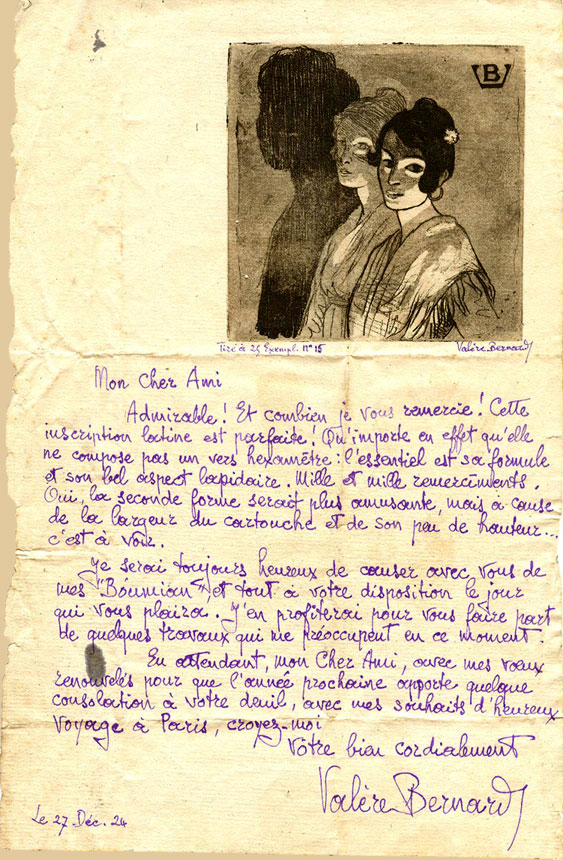 VB
Tiré à 25 Exempl. n° 15
Valère Bernard
Mon Cher Ami
Admirable ! Et combien je vous remercie ! Cette
inscription latine est parfaite ! Qu'importe en effet qu'elle
ne compose pas un vers hexamètre : l'essentiel est sa formule
et son bel aspect lapidaire. Mille et mille remercîments.
Oui, la seconde forme serait plus amusante, mais à cause
de la largeur du cartouche et de son peu de hauteur...
c'est à voir.
Je serai toujours heureux de causer avec vous de
mes "Bóumian", et tout à votre disposition le jour
qui vous plaira. J'en profiterai pour vous faire part
de quelques travaux qui me préoccupent en ce moment
En attendant, mon Cher Ami, avec mes vœux
renouvelés pour que l'année prochaine apporte quelque
consolation à votre deuil, avec mes souhaits d'heureux
voyage à Paris, croyez-moi
Vôtre bien cordialement
Valère Bernard
Le 27 Déc. 24